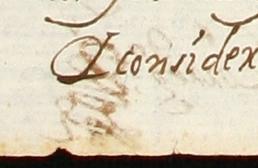 I consider